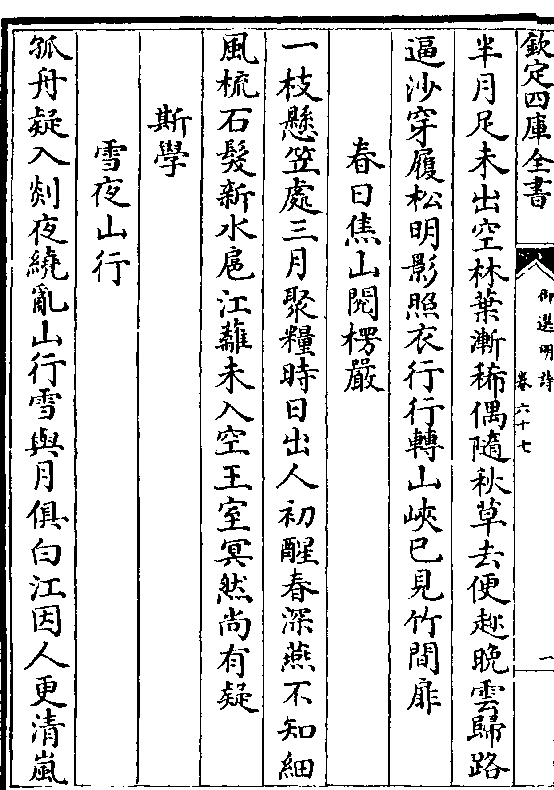 欽定四庫全書
御選明詩
卷六十七
一
半月足未出空林葉漸稀偶隨秋草去便趂晚雲歸路
逼沙穿履松明影照衣行行轉山峽已見竹間扉
春日焦山閱楞嚴
一枝懸笠處三月聚糧時日出人初醒春深燕不知細
風梳石髮新水扈江蘺未入空王室冥然尚有疑
斯學
雪夜山行
孤舟疑入剡夜繞亂山行雪與月俱白江因人更清嵐